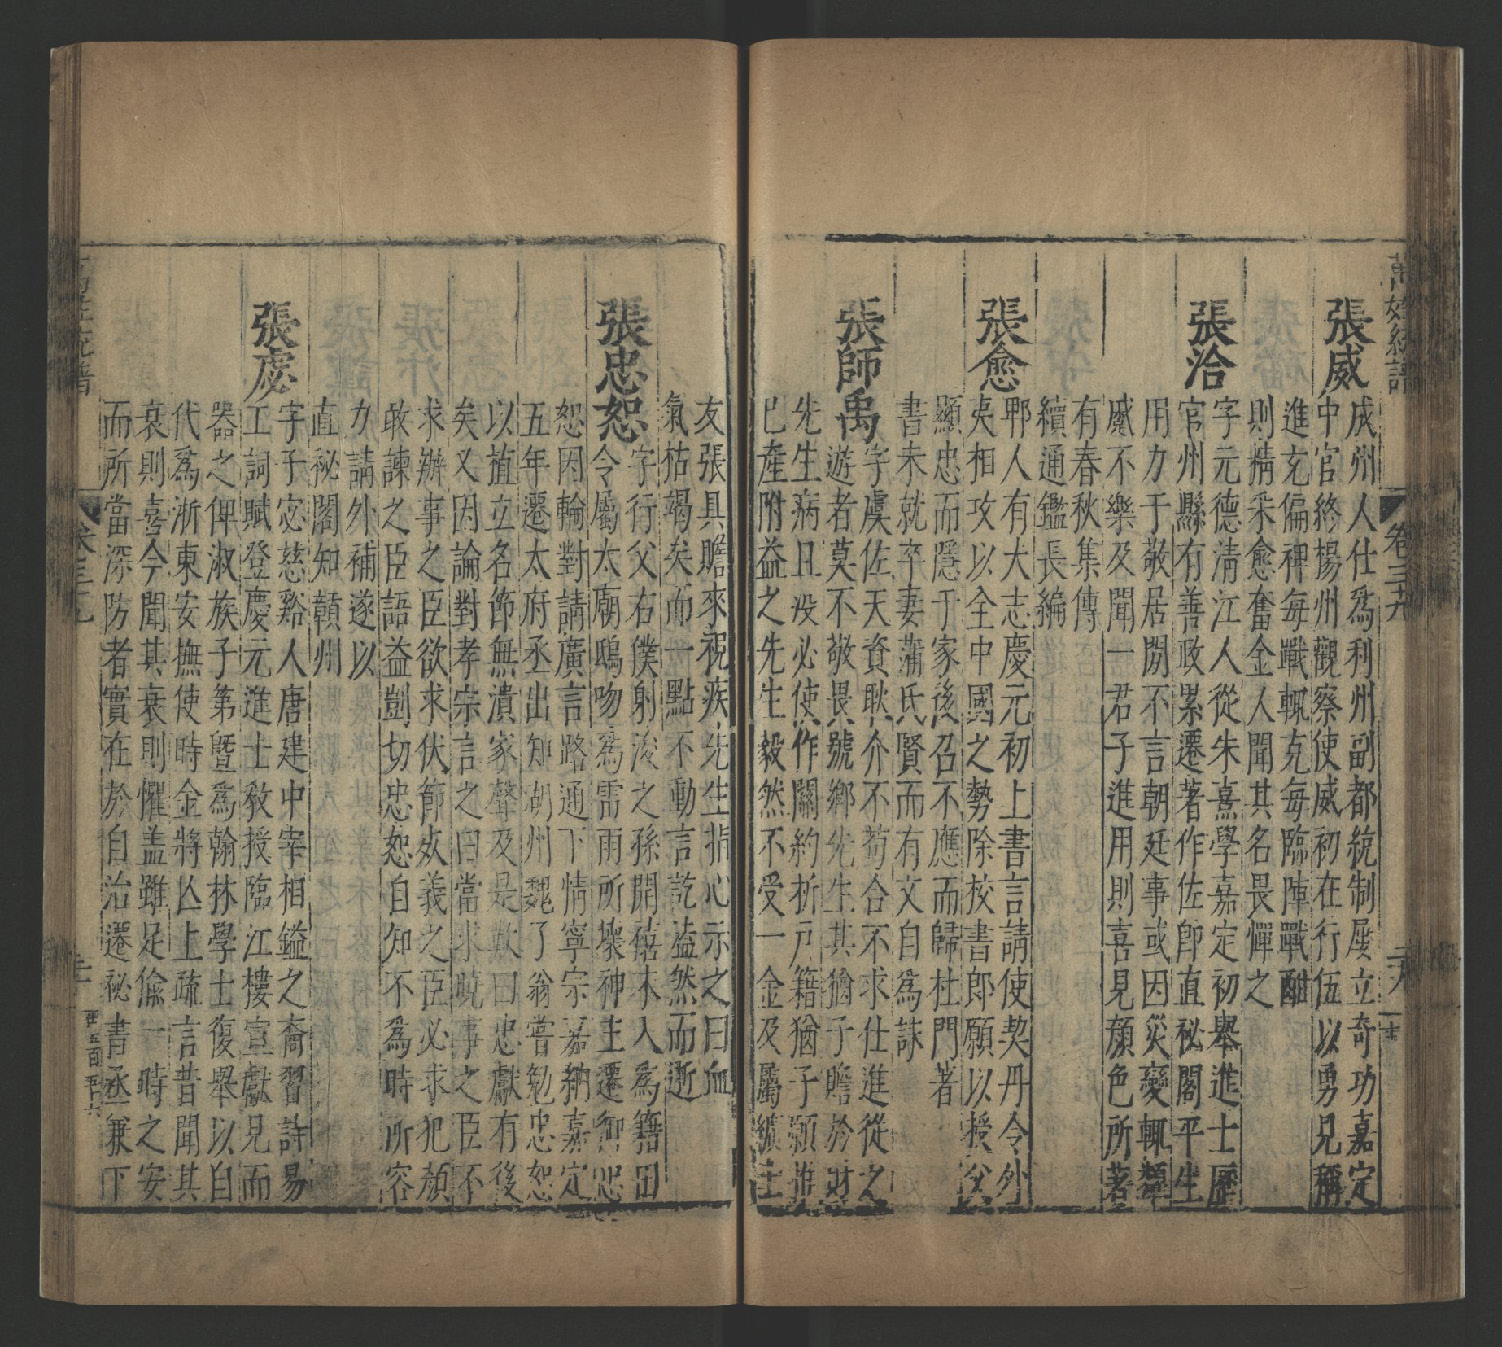 萬姓統譜
卷三十九
張威
成州人仕爲利州副都統制屢立奇功嘉定
中官終揚州觀察使威初在行伍以勇見稱
進充偏裨每戰輒克每臨陣戰酣
則精采愈奮金人聞其名畏憚之
張洽
字元德淸江人從朱熹學嘉定初舉進士歷
官州縣有善政累遷著作佐郎直秘閣平生
用力于敬居閒不言朝廷事或因災變輒顰
慼不樂及聞一君子進用則喜見顔色所著
有春秋集傳
續通鑑長編
張愈
郫人有大志慶元初上書言請使契丹令外
夷相攻以全中國之勢除校書郎願以授父
顯忠而隱于家後召不應而歸杜門著
書未就卒妻蒲氏賢而有文自爲誄
張師禹
字虞佐天資耿介不苟合不求仕進從之
遊者莫不敬畏號鄉先生其猶子瞻於財
先生病且歿必使作關約析戶籍猶子願推
已產附益之先生毅然不受一金及屬纊士
友張具瞻來視疾先生指心示之曰血
氣枯竭矣而一點不動言訖溘然而逝
張忠恕
字行父右僕射浚之孫開禧末入爲籍田
令屬太廟鴟吻爲雷雨所壞神主遷御忠
恕因輪對請廣言路通下情寧宗嘉納嘉定
五年遷太府丞出知湖州魏了翁嘗勉忠恕
以植立名節無瀆家聲及是歎曰忠獻有後
矣又因論對孝宗言之曰當求曉事之臣不
求辦事之臣欲求伏節死義之臣必求犯顔
敢諫之臣語益剴切忠恕自知不爲時所容
力請外補遂以
直秘閣知贛州
張虙
字子宓慈谿人唐建中宰相鎰之裔習詩易
工詞賦登慶元進士教授臨江樓宣獻見而
器之俾淑族子第曁爲翰林學士復舉以自
代爲浙東安撫使時金將亾上疏言昔聞其
衰則喜今聞其衰則懼盖雖足偸一時之安
而所當深防者實在於自治遷秘書丞兼下